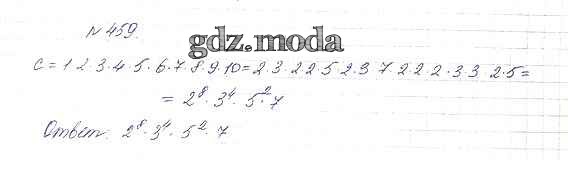 № 459.
gdz.moda
c = 1 2 · 3 · 4 · 5 · 6 · 7 · 8 · 9 · 10 = 2 · 3 · 2 2 · 5 · 2 · 3 7 · 2 2 · 2 · 3 3 · 2 · 5 =
= 2⁸ · 3⁴ · 5² · 7
Ответ: 2⁸ · 3⁴ · 5² · 7